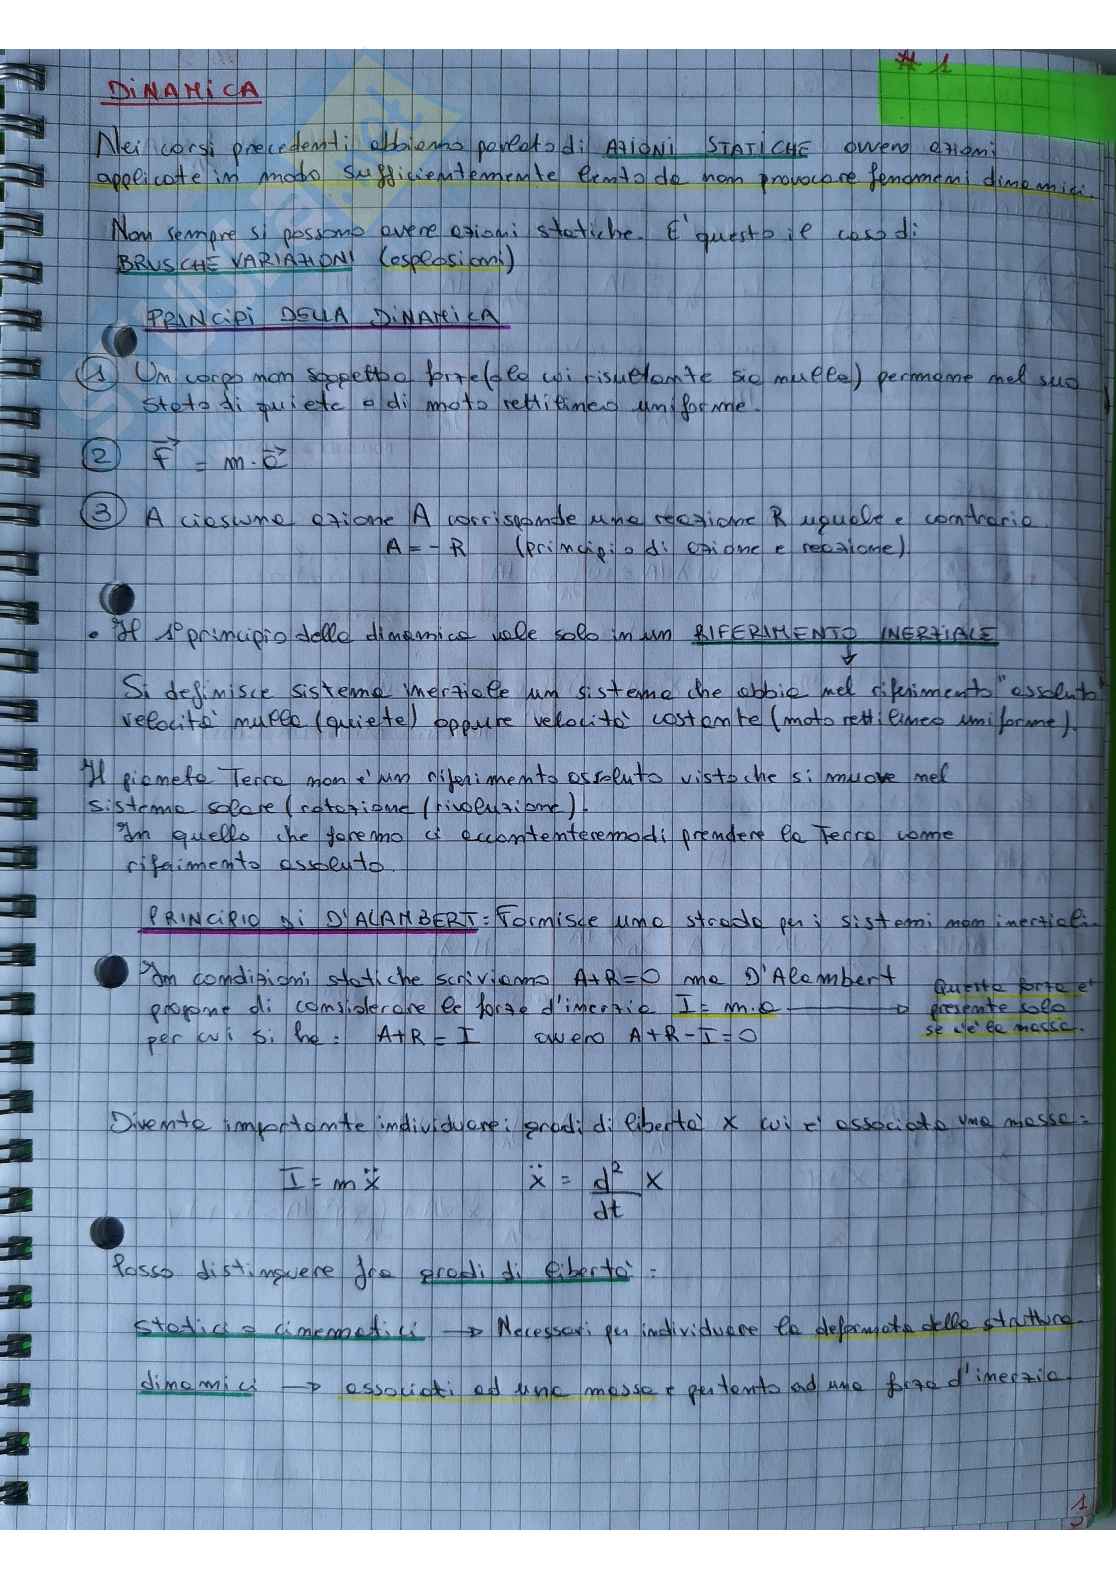 # 1
DINAMICA
Nei corsi precedenti abbiamo parlato di AZIONI STATICHE ovvero azioni
applicate in modo sufficientemente lento da non provocare fenomeni dinamici.
Non sempre si possono avere azioni statiche. E' questo il caso di
BRUSCHE VARIAZIONI (esplosioni)
PRINCIPI DELLA DINAMICA
1 Un corpo non soggetto a forze (o la cui risultante sia nulla) permane nel suo
stato di quiete o di moto rettilineo uniforme.
2 F = m · a
3 A ciascuna azione A corrisponde una reazione R uguale e contraria.
A = - R (principio di azione e reazione)
• Il 1° principio della dinamica vale solo in un RIFERIMENTO INERZIALE
↓
Si definisce sistema inerziale un sistema che abbia nel riferimento "assoluto"
velocità nulla (quiete) oppure velocità costante (moto rettilineo uniforme).
Il pianeta Terra non e' un riferimento assoluto visto che si muove nel
sistema solare (rotazione / rivoluzione).
In quello che faremo ci accontenteremo di prendere la Terra come
riferimento assoluto.
PRINCIPIO DI D'ALAMBERT: Fornisce una strada per i sistemi non inerziali.
In condizioni statiche scriviamo A+R=0 ma D'Alambert
propone di considerare le forze d'inerzia I = m·a → Questa forza e'
presente solo
se c'è la massa.
per cui si ha: A+R = I ovvero A+R-I=0
Diventa importante individuare i gradi di libertà x cui e' associata una massa:
I = mẍ ẍ = d²/dt x
Posso distinguere fra gradi di libertà:
statici o cinematici → Necessari per individuare la deformata della struttura
dinamici → associati ad una massa e pertanto ad una forza d'inerzia.
1